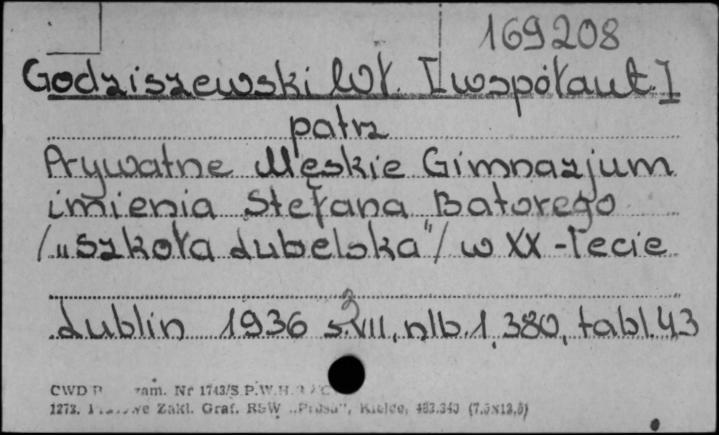 169208
Godziszewski Wł. [współaut.]
patrz
Prywatne Męskie Gimnazjum
imienia Stefana Batorego
/„Szkoła Lubelska"/ w XX-lecie
Lublin 1936 s. VIII, nlb. 1, 380, tabl. 43
CWD zam. Nr 1743/S P.W.H.
1273. Zakł. Graf. RSW „Prasa", Kielce,